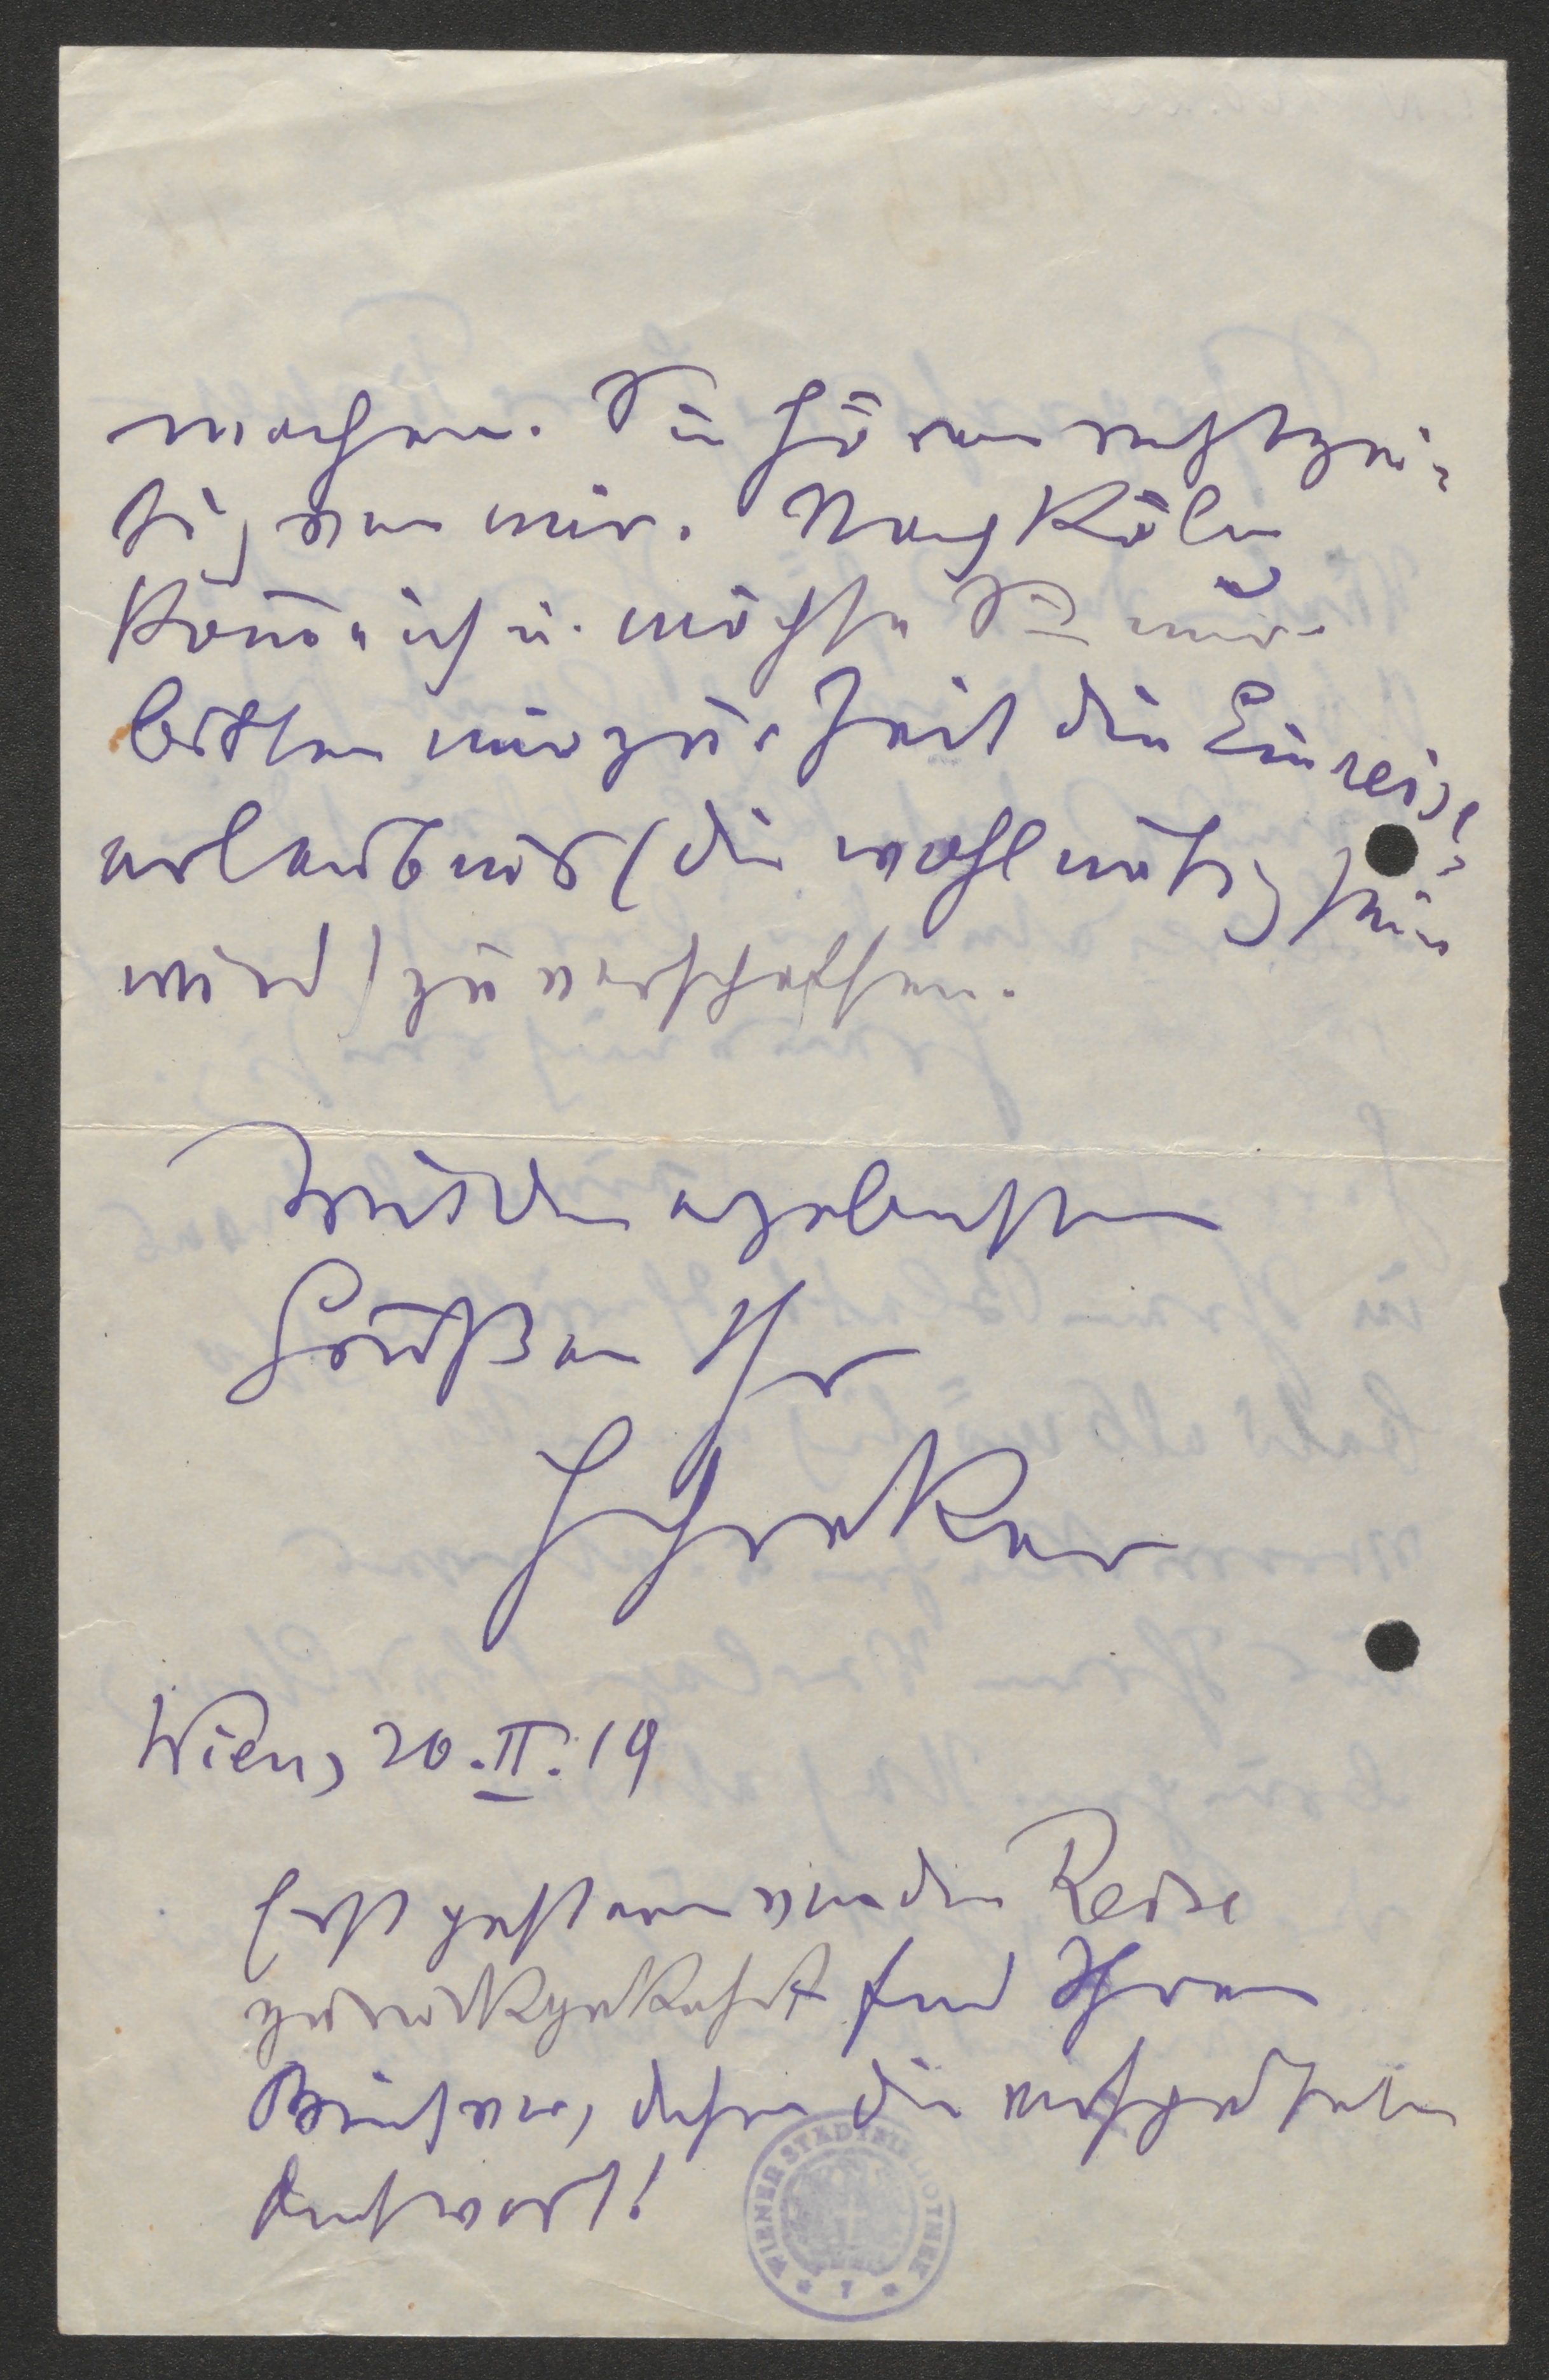 machen. Sie hören rechtzei-
tig von mir. Nach Köln
kom̅e ich u. möchte Sie nur
bitten mir zur Zeit die Einreise-
erlaubnis (die wohl nötig sein
wird) zu verschaffen.
Mit den ergebensten
Grüßen Ihr
Schreker
Wien, 20.II.19
Erst gestern von der Reise
zurückgekehrt fand Ihren
Brief vor, daher die verspätete
Antwort!
WIENER STADTBIBLIOTHEK